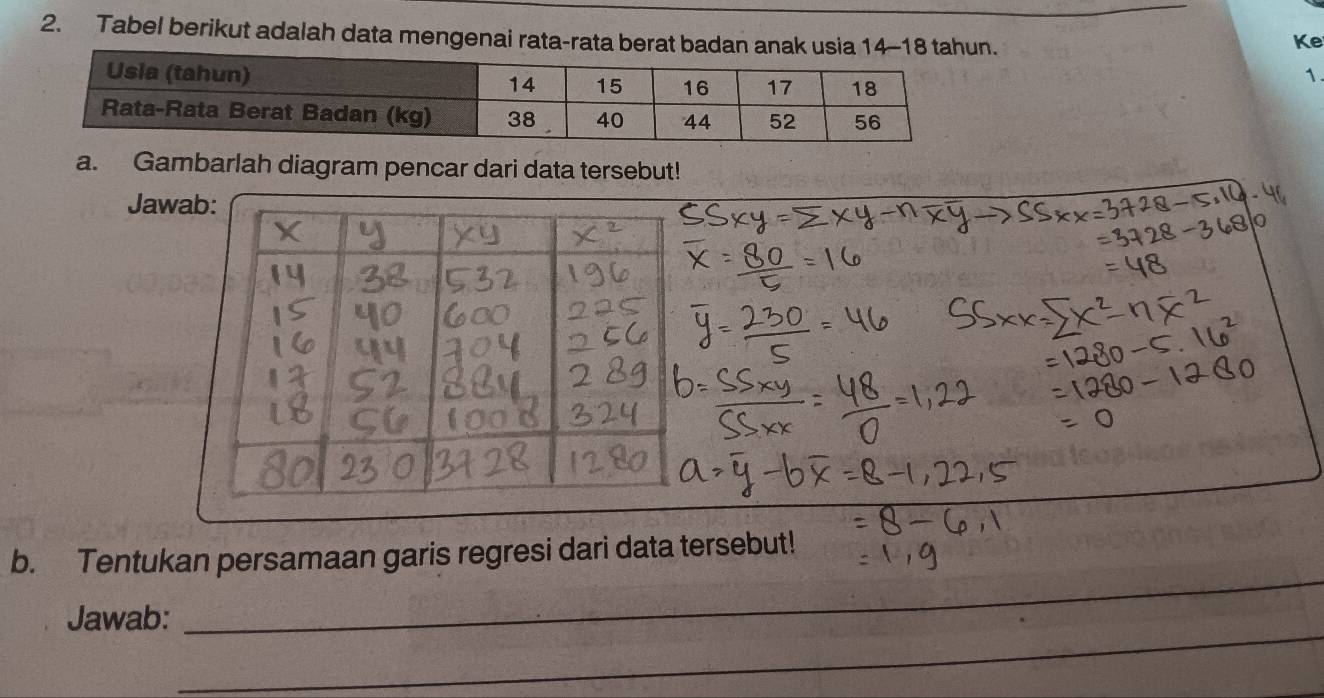 2. Tabel berikut adalah data mengenai rata-rata berat badan anak usia 14–18 tahun.
Ke
1.
Usia (tahun) 14 15 16 17 18
Rata-Rata Berat Badan (kg) 38 40 44 52 56
a. Gambarlah diagram pencar dari data tersebut!
Jawab:
x y xy x²
14 38 532 196
15 40 600 225
16 44 704 256
17 52 884 289
18 56 1008 324
80 230 3728 1280
SSxy = Σxy - n x̄ȳ → SSxx = 3728 - 5.16.46
= 3728 - 3680
= 48
x̄ = 80/5 = 16
ȳ = 230/5 = 46
SSxx = Σx² - n x̄²
= 1280 - 5.16²
= 1280 - 1280
= 0
b = SSxy/SSxx = 48/0 = 1,22
a = ȳ - bx̄ = 8 - 1,22,5
= 8 - 6,1
= 1,9
b. Tentukan persamaan garis regresi dari data tersebut!
Jawab: